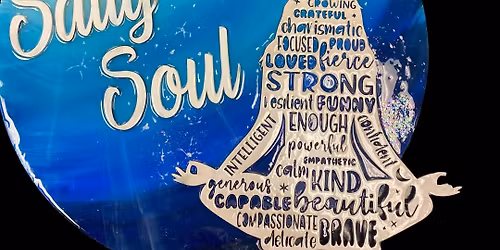 Salty
Soul
GROWING
GRATEFUL
charismatic
FOCUSED PROUD
LOVED fierce
STRONG
resilient FUNNY
INTELLIGENT ENOUGH confident
powerful
EMPATHETIC
calm KIND
generous
CAPABLE beautiful
COMPASSIONATE
delicate BRAVE